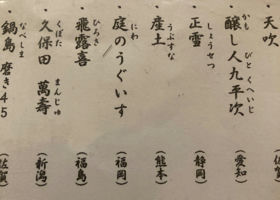 天吹 (佐賀)
・醸し人九平次 (愛知)
かも びと くへいじ
・正雪 (静岡)
しょうせつ
・産土 (熊本)
うぶすな
・庭のうぐいす (福岡)
にわ
・飛露喜 (福島)
ひろき
・久保田 萬壽 (新潟)
くぼた まんじゅ
鍋島 磨き45 (佐賀)
なべしま みが